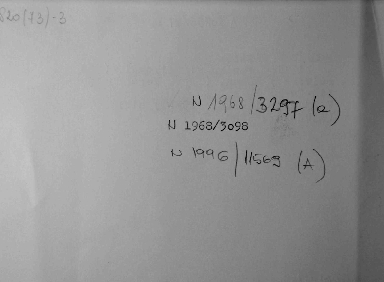 820(73)-3
N 1968/3297 (a)
N 1968/3098
N 1996/11569 (A)